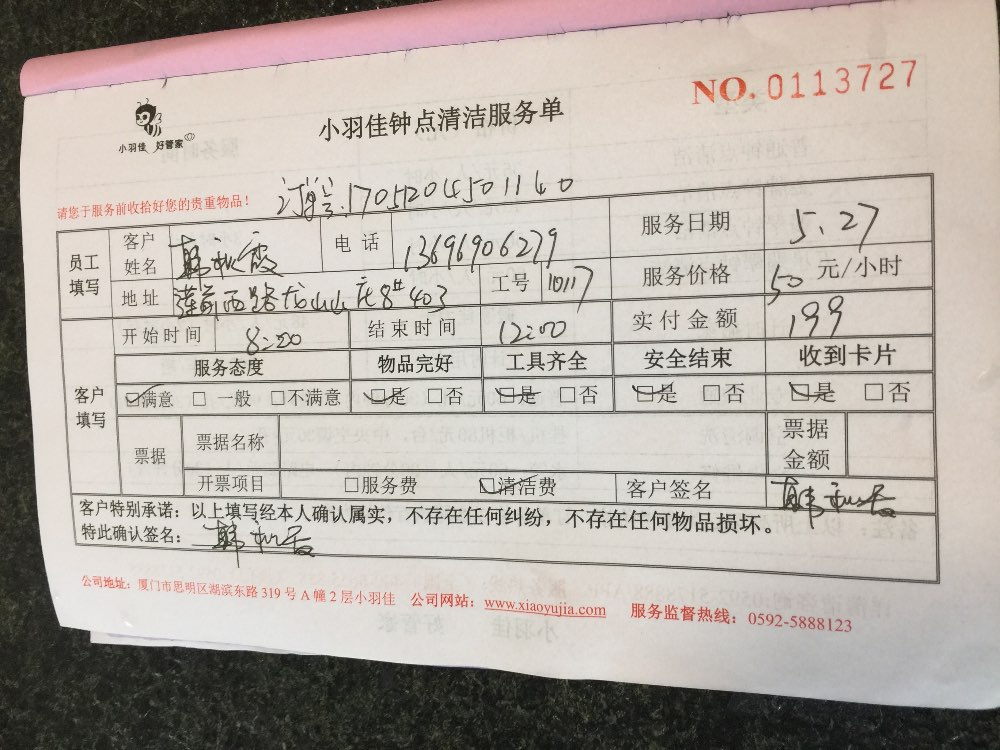 NO. 0113727
小羽佳 好管家
小羽佳钟点清洁服务单
请您于服务前收拾好您的贵重物品！
1705204501140
员工填写 客户姓名 韩 霞 电话 13696906279 服务日期 5.27
地址 莲前西路龙山山庄8#403 工号 10117 服务价格 50 元/小时
客户填写 开始时间 8:00 结束时间 12:00 实付金额 199
服务态度 物品完好 工具齐全 安全结束 收到卡片
☑满意 □ 一般 □不满意 ☑是 □否 ☑是 □否 ☑是 □否 ☑是 □否
票据 票据名称 票据金额
开票项目 □服务费 ☑清洁费 客户签名 韩
客户特别承诺：以上填写经本人确认属实，不存在任何纠纷，不存在任何物品损坏。
特此确认签名： 韩
公司地址：厦门市思明区湖滨东路 319 号 A 幢 2 层小羽佳 公司网站：www.xiaoyujia.com 服务监督热线：0592-5888123